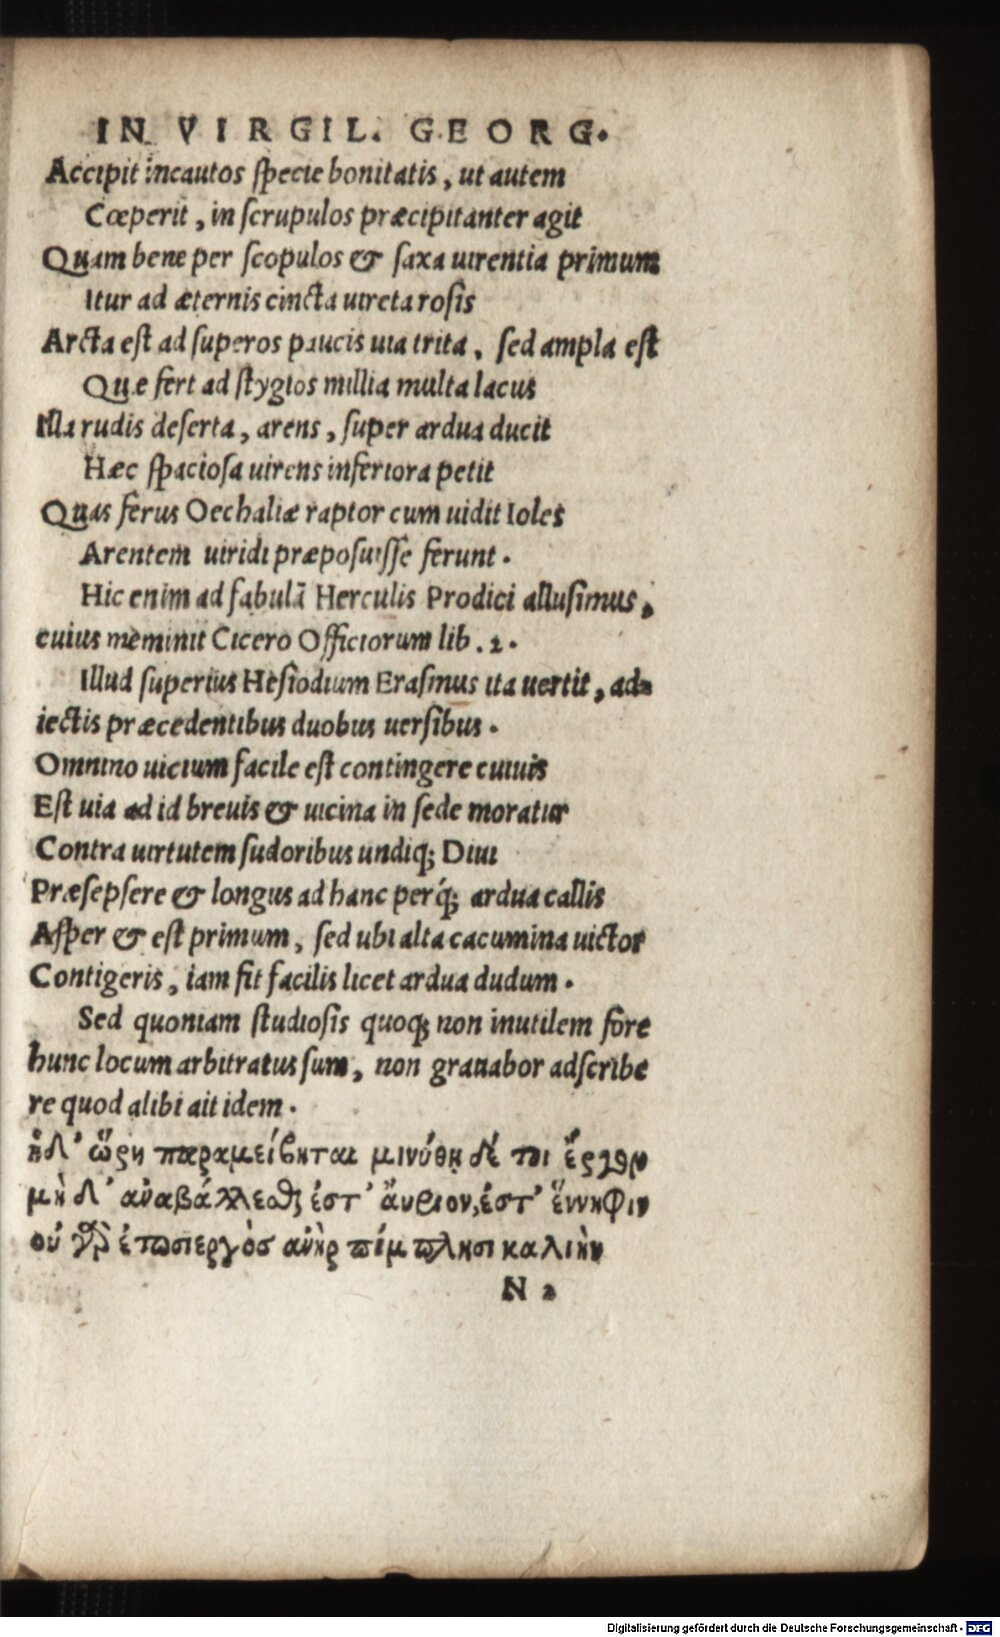 IN VIRGIL. GEORG.
Accipit incautos specie bonitatis, ut autem
Cœperit, in scrupulos præcipitanter agit
Quam bene per scopulos & saxa uirentia primum
Itur ad æternis cincta uireta rosis
Arcta est ad superos paucis uia trita, sed ampla est
Quæ fert ad stygios millia multa lacus
Illa rudis deserta, arens, super ardua ducit
Hæc spaciosa uirens inferiora petit
Quas ferus Oechaliæ raptor cum uidit Ioles
Arentem uiridi præposuisse ferunt.
Hic enim ad fabulã Herculis Prodici allusimus,
cuius meminit Cicero Officiorum lib. 2.
Illud superius Hesiodium Erasmus ita uertit, ad-
iectis præcedentibus duobus uersibus.
Omnino uicium facile est contingere cuiuis
Est uia ad id breuis & uicina in sede moratur
Contra uirtutem sudoribus undiq; Diui
Præsepsere & longus ad hanc perq́; ardua callis
Asper & est primum, sed ubi alta cacumina uictor
Contigeris, iam fit facilis licet ardua dudum.
Sed quoniam studiosis quoq; non inutilem fore
hunc locum arbitratus sum, non grauabor adscribe
re quod alibi ait idem.
ἠδ' ὥρη παραμείβηται μινύθῃ δέ τοι ἔργον
μὴ δ' ἀναβάλλεσθαι ἐστ' ἄυριον, ἐστ' ἔννηφιν
οὐ γὰρ ἐτωσιεργὸσ ἀνὴρ πίμπλησι καλιὴν
N 2
Digitalisierung gefördert durch die Deutsche Forschungsgemeinschaft - DFG